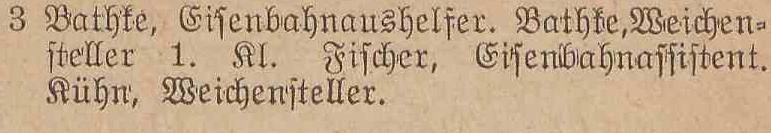 3 Bathke, Eiſenbahnaushelfer. Bathke,Weichen-
ſteller 1. Kl. Fiſcher, Eiſenbahnaſſiſtent.
Kühn, Weichenſteller.